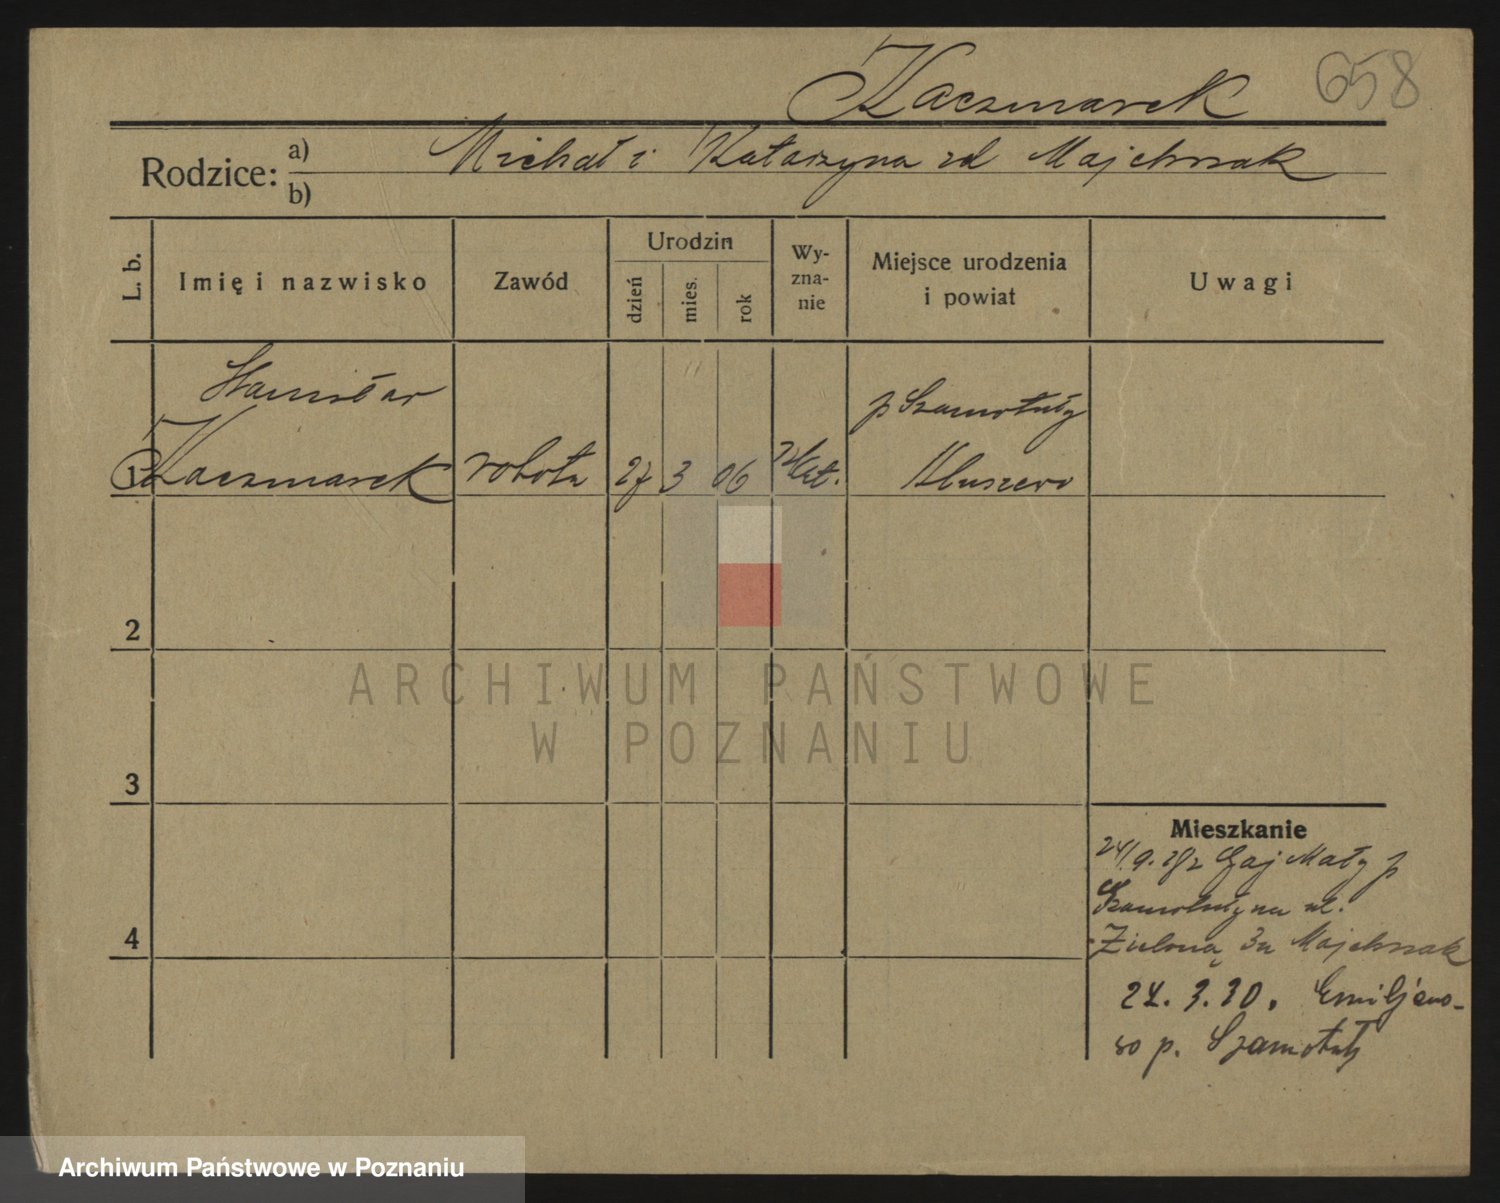 Kaczmarek 658
Rodzice: a) Michał i Katarzyna zd Majchrzak
b)
L. b. Imię i nazwisko Zawód Urodzin dzień mies. rok Wyznanie Miejsce urodzenia i powiat Uwagi
Stanisław p Szamotuły
1 Kaczmarek robotn 27 3 06 kat. Kluszewo
2
ARCHIWUM PAŃSTWOWE
W POZNANIU
3
Mieszkanie
24/9. Gaj Mały p
Szamotuły na ul.
4
Zieloną 3a Majchrzak
24. 3. 30. Emiljano-
wo p. Szamotuły
Archiwum Państwowe w Poznaniu